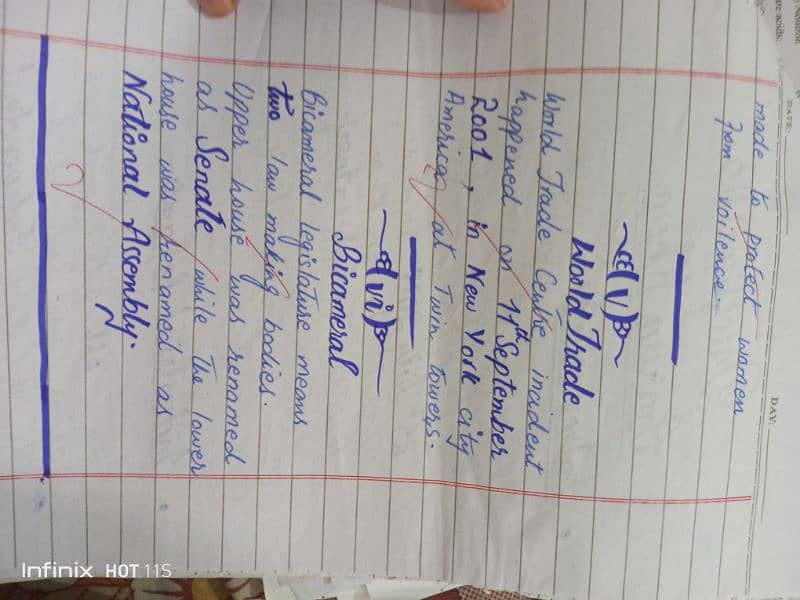 DATE:
DAY:
made to protect women
from voilence.
(v)
World Trade
World Trade Centre incident
happened on 11th September
2001, in New York city
America, at Twin towers.
(vi)
Bicameral
Bicameral legislature means
two law making bodies.
Upper house was renamed
as Senate while the lower
house was renamed as
National Assembly.
Infinix HOT 11S